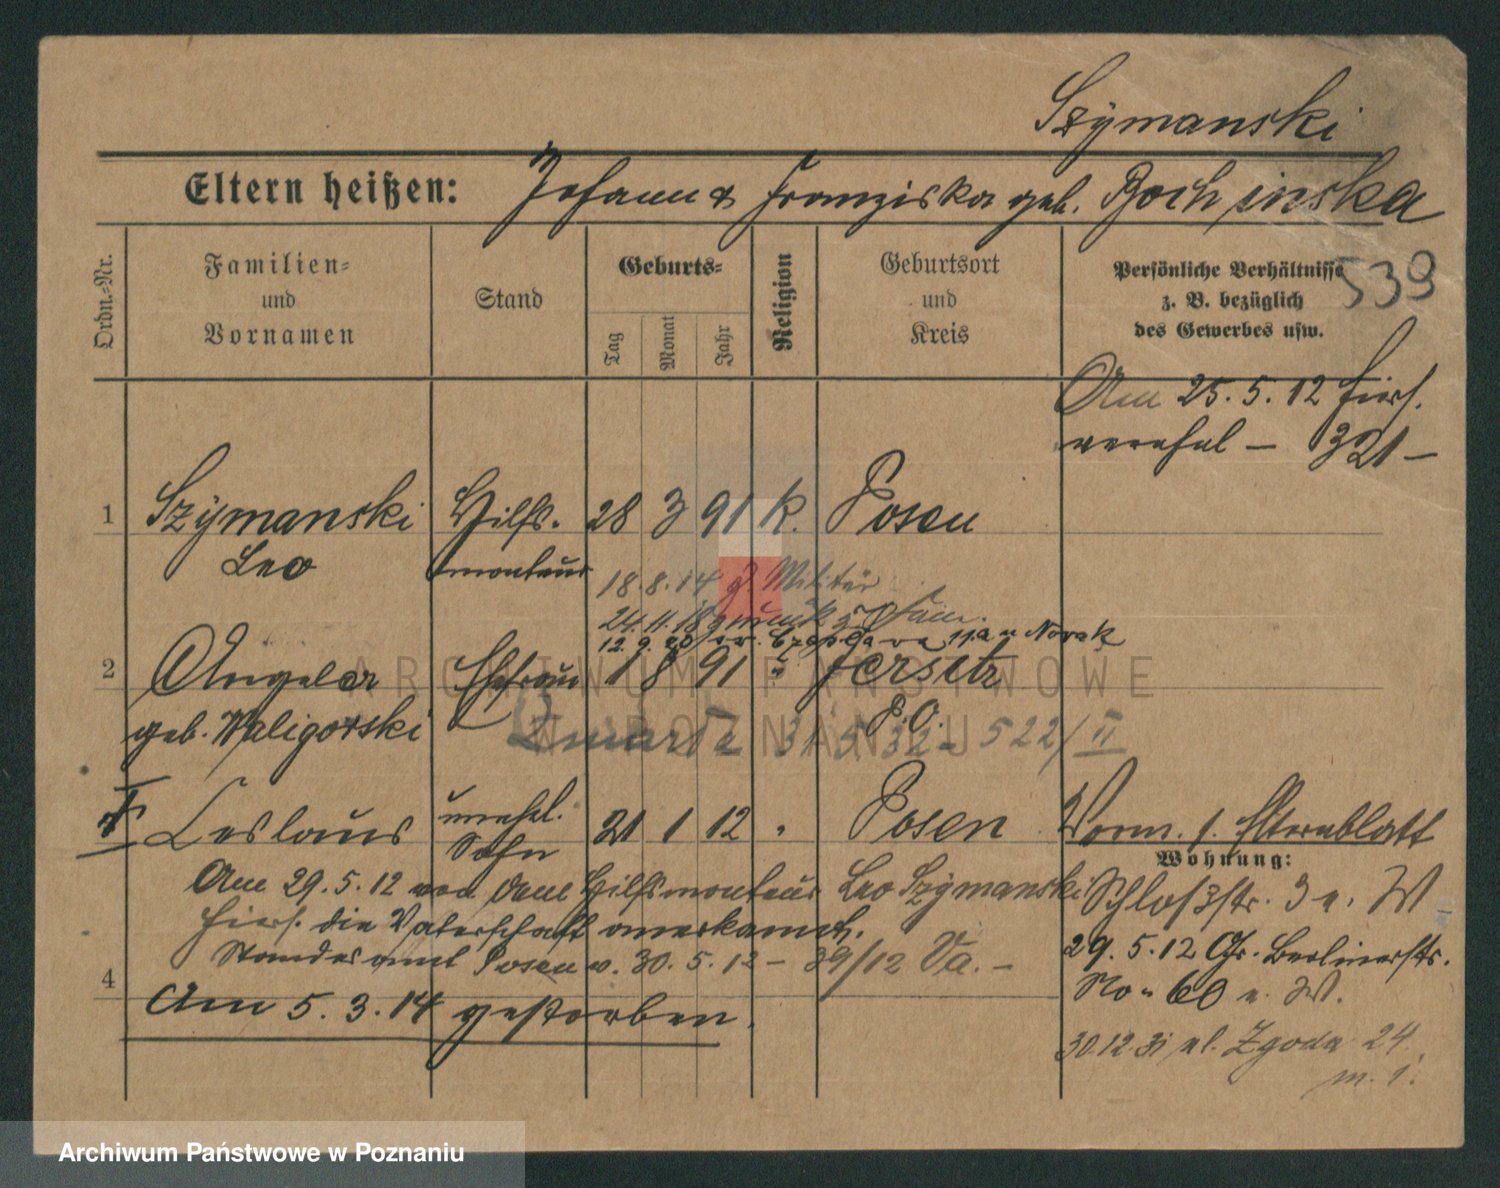 Szymanski
Eltern heißen: Johann & Franziska geb. Bochinska
Ordn.-Nr.
Familien-
und
Vornamen
Stand
Geburts-
Tag
Monat
Jahr
Religion
Geburtsort
und
Kreis
Persönliche Verhältnisse
z. B. bezüglich
des Gewerbes usw.
539
Am 25. 5. 12 hiers.
verehel – 321 –
1 Szymanski Hilfs- 28 3 91 k. Posen
Leo monteur
18.8.14 z. Militär
24.11.18 zurück
12. 9. 20
2 Angela Ehefrau 1 8 91 " Jersitz
geb. Waligorski P. O.
31 5 32 – 522/II
Leslaus unehel. 21 1 12 " Posen Vorm. s. Elternblatt
Sohn
Wohnung:
Am 29. 5. 12 von dem Hilfsmonteur Leo Szymanski
hiers. die Vaterschaft anerkannt.
Standesamt Posen v. 30. 5. 12 – 39/12 Va. –
4
Am 5. 3. 14 gestorben.
Schloßstr. 3 u. W
29. 5. 12 Gr. Berlinerstr.
No 60 u. W.
30.12.31 ul. Zgoda 24
m. 1.
ARCHIWUM PAŃSTWOWE
W POZNANIU
Archiwum Państwowe w Poznaniu